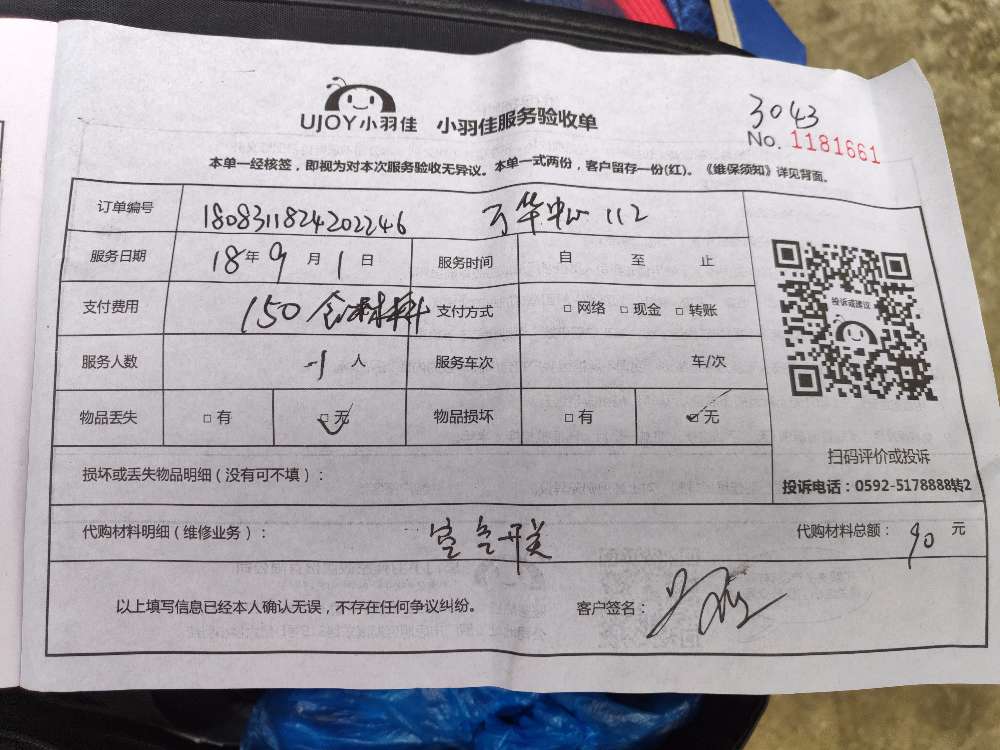 UJOY小羽佳 小羽佳服务验收单
3043
No. 1181661
本单一经核签，即视为对本次服务验收无异议。本单一式两份，客户留存一份(红)。《维保须知》详见背面。
订单编号 1808311824202246 万华中心 112
服务日期 18年 9月 1日 服务时间 自 至 止
支付费用 150 含材料 支付方式 □ 网络 □ 现金 □ 转账
服务人数 1 人 服务车次 车/次
物品丢失 □ 有 □ 无 物品损坏 □ 有 □ 无
投诉或建议
扫码评价或投诉
投诉电话：0592-5178888转2
损坏或丢失物品明细（没有可不填）：
代购材料明细（维修业务）： 空气开关 代购材料总额： 90 元
以上填写信息已经本人确认无误，不存在任何争议纠纷。 客户签名：